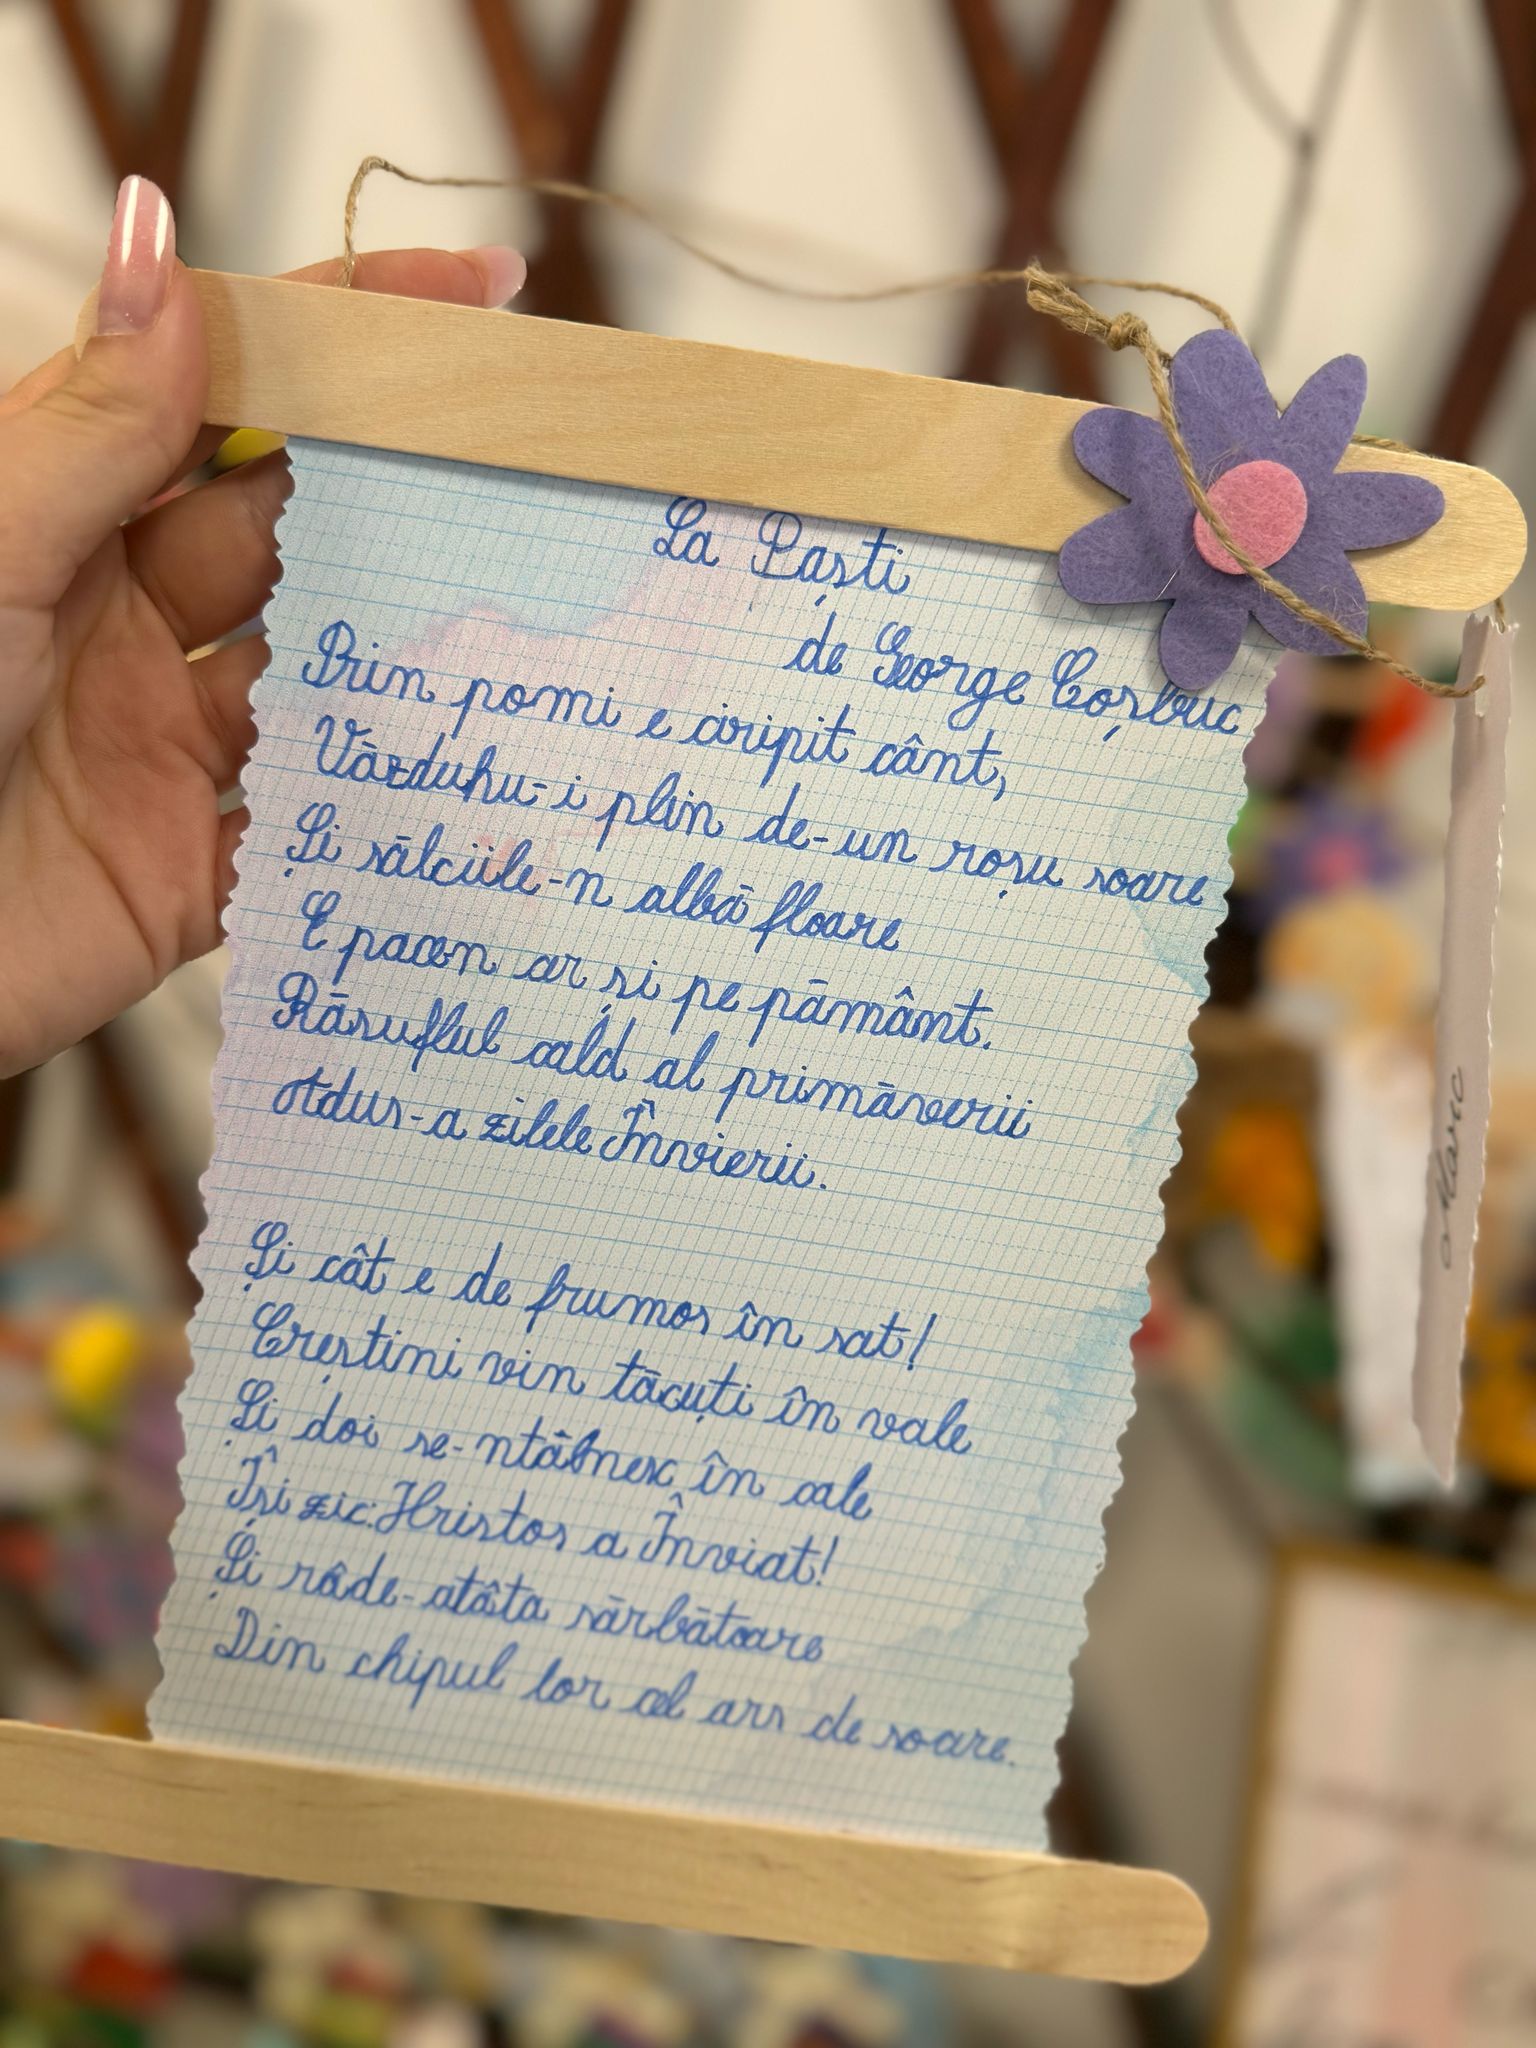 La Paști
de George Coșbuc
Prin pomi e ciripit cânt,
Văzduhu-i plin de-un roșu soare
Și sălciile-n albă floare
E pace-n ar și pe pământ.
Răsuflul cald al primăverii
Adus-a zilele Învierii.
Și cât e de frumos în sat!
Creștini vin tăcuți în vale
Și doi se-ntâlnesc în cale
Își zic: Hristos a Înviat!
Și râde-atâta sărbătoare
Din chipul lor cel ars de soare.
Marc